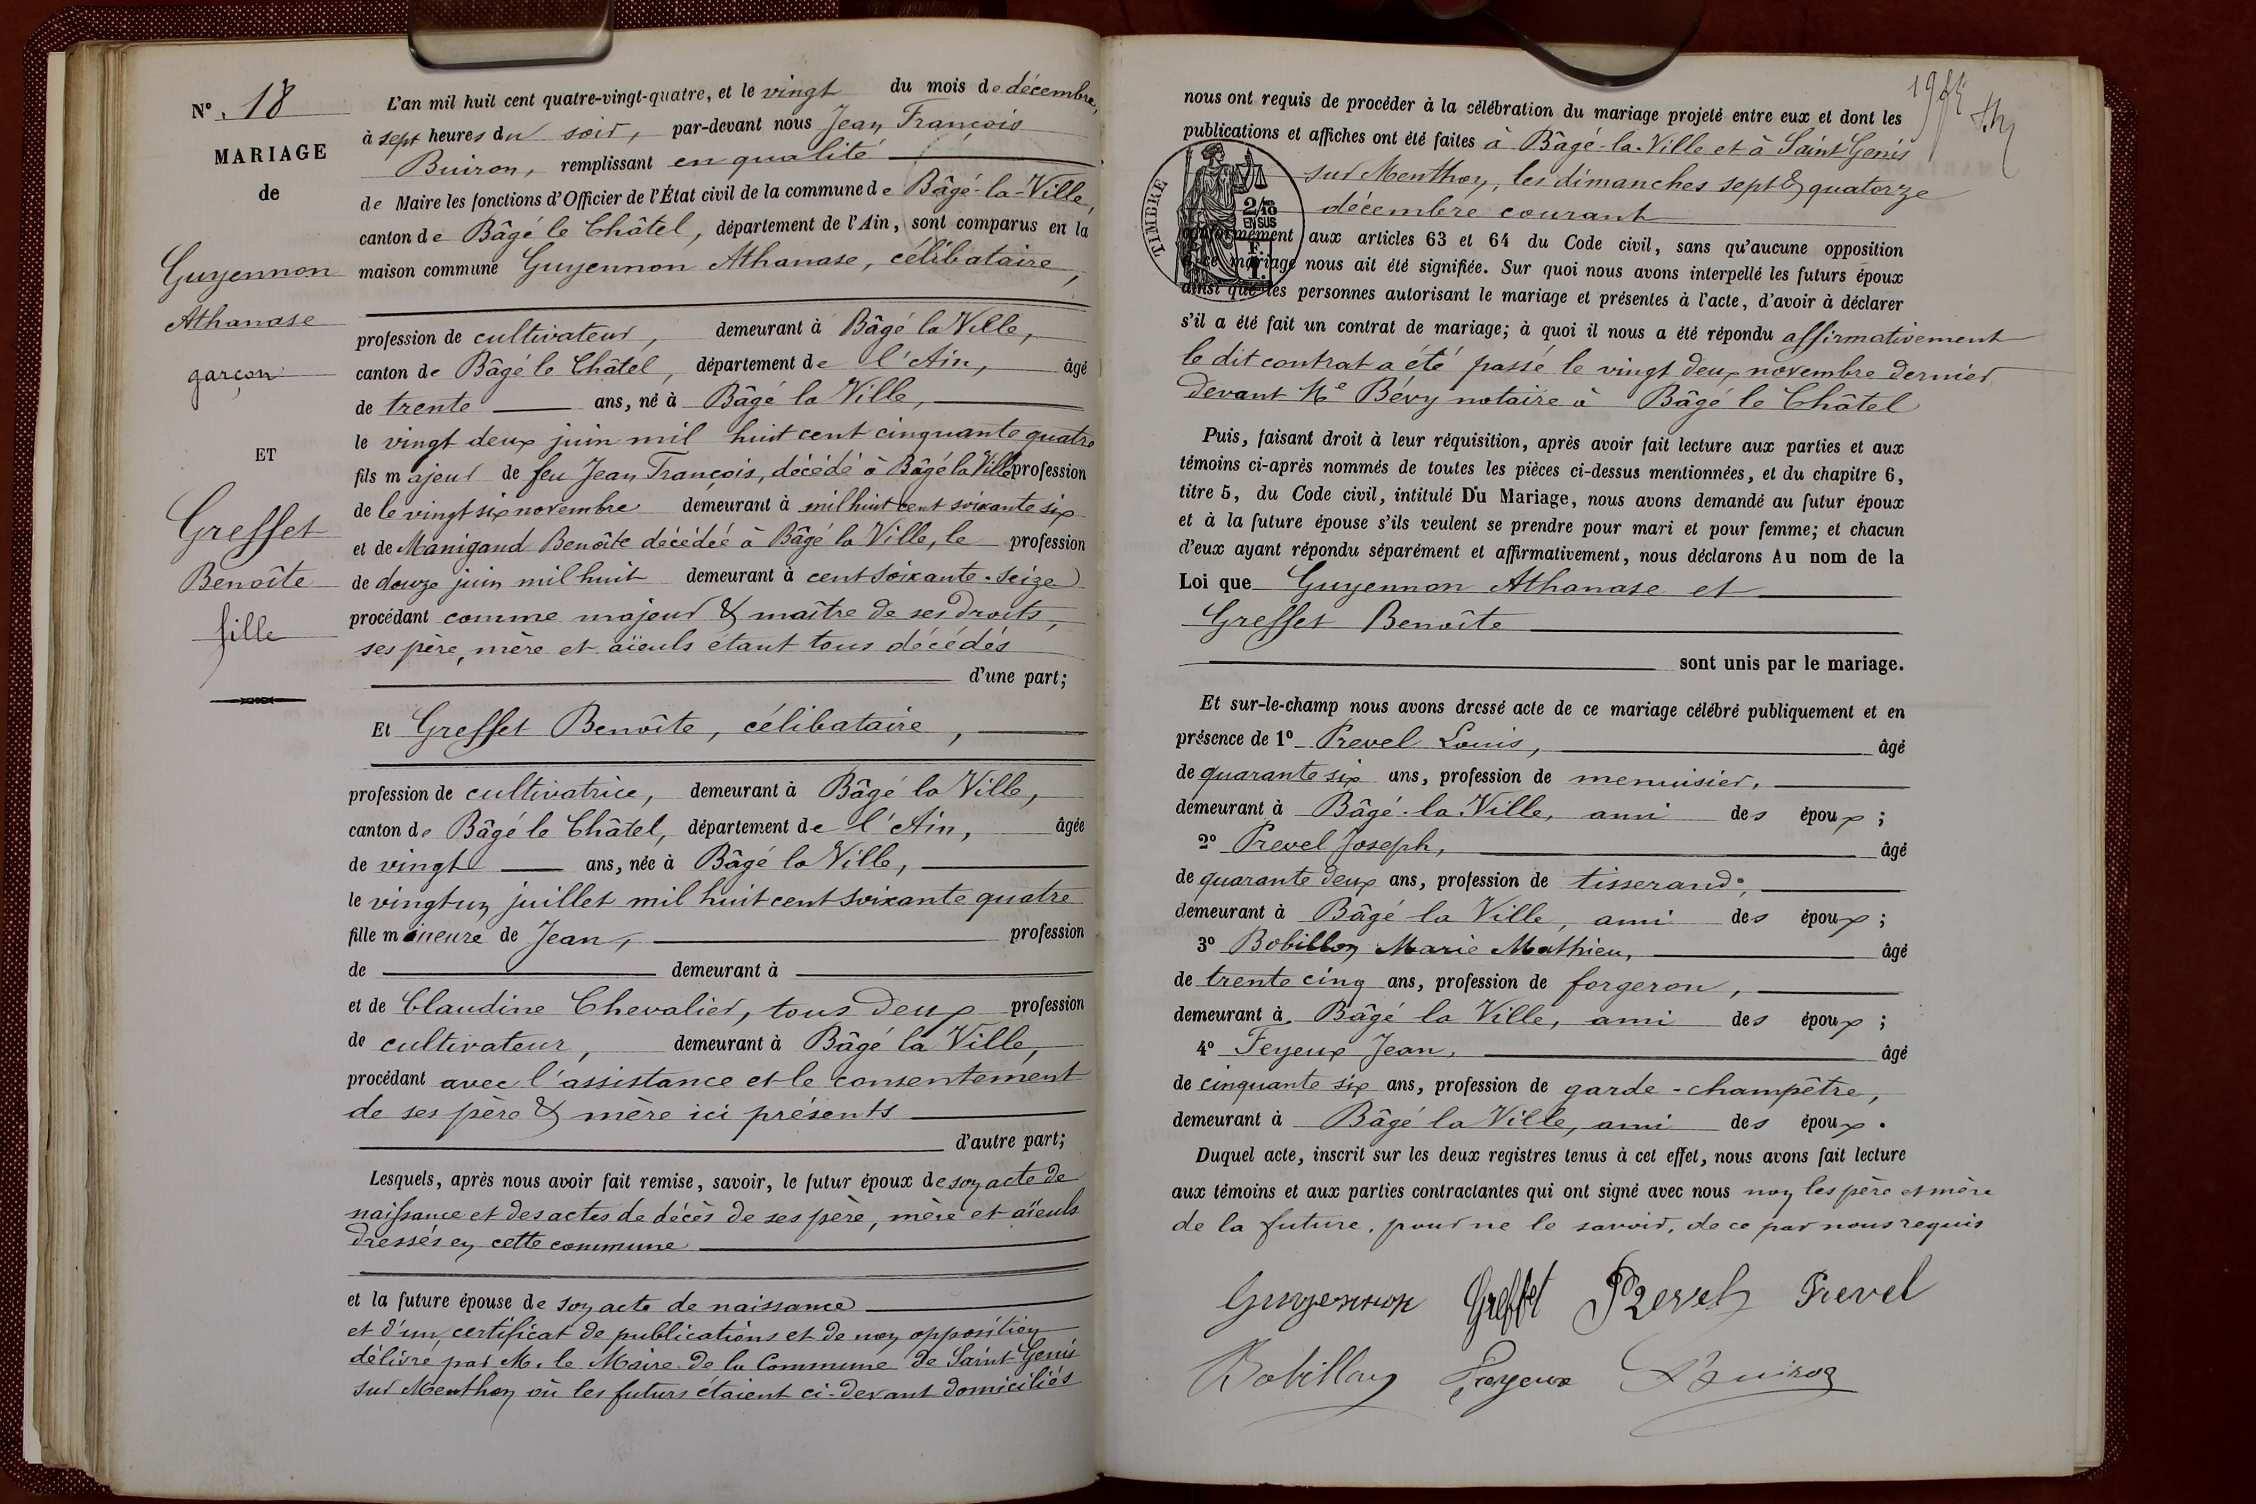 N°. 18
MARIAGE
de
Guyennon
Athanase
garçon
ET
Greffet
Benoîte
fille
L'an mil huit cent quatre-vingt-quatre, et le vingt du mois de décembre,
à sept heures du soir, par-devant nous Jean François
Buiron, remplissant en qualité
de Maire les fonctions d'Officier de l'État civil de la commune de Bâgé-la-Ville,
canton de Bâgé le Châtel, département de l'Ain, sont comparus en la
maison commune Guyennon Athanase, célibataire,
profession de cultivateur, demeurant à Bâgé la Ville,
canton de Bâgé le Châtel, département de l'Ain, âgé
de trente ans, né à Bâgé la Ville,
le vingt deux juin mil huit cent cinquante quatre
fils majeur de feu Jean François, décédé à Bâgé la Ville profession
de le vingt six novembre demeurant à mil huit cent soixante six
et de Manigand Benoîte décédée à Bâgé la Ville, le profession
de douze juin mil huit demeurant à cent soixante-seize
procédant comme majeur & maître de ses droits,
ses père, mère et aïeuls étant tous décédés
d'une part;
Et Greffet Benoîte, célibataire,
profession de cultivatrice, demeurant à Bâgé la Ville,
canton de Bâgé le Châtel, département de l'Ain, âgée
de vingt ans, née à Bâgé la Ville,
le vingt un juillet mil huit cent soixante quatre
fille mineure de Jean, profession
de demeurant à
et de Claudine Chevalier, tous deux profession
de cultivateur, demeurant à Bâgé la Ville,
procédant avec l'assistance et le consentement
de ses père & mère ici présents
d'autre part;
Lesquels, après nous avoir fait remise, savoir, le futur époux de son acte de
naissance et des actes de décès de ses père, mère et aïeuls
dressés en cette commune
et la future épouse de son acte de naissance
et d'un certificat de publications et de non opposition
délivré par M. le Maire de la Commune de Saint-Genis
sur Menthon où les futurs étaient ci-devant domiciliés
nous ont requis de procéder à la célébration du mariage projeté entre eux et dont les
publications et affiches ont été faites à Bâgé-la-Ville et à Saint Genis
sur Menthon, les dimanches sept & quatorze
décembre courant
TIMBRE
2/10
EN SUS
conformément aux articles 63 et 64 du Code civil, sans qu'aucune opposition
à ce mariage nous ait été signifiée. Sur quoi nous avons interpellé les futurs époux
ainsi que les personnes autorisant le mariage et présentes à l'acte, d'avoir à déclarer
s'il a été fait un contrat de mariage; à quoi il nous a été répondu affirmativement
le dit contrat a été passé le vingt deux novembre dernier
devant Me Bévy notaire à Bâgé le Châtel
Puis, faisant droit à leur réquisition, après avoir fait lecture aux parties et aux
témoins ci-après nommés de toutes les pièces ci-dessus mentionnées, et du chapitre 6,
titre 5, du Code civil, intitulé Du Mariage, nous avons demandé au futur époux
et à la future épouse s'ils veulent se prendre pour mari et pour femme; et chacun
d'eux ayant répondu séparément et affirmativement, nous déclarons Au nom de la
Loi que Guyennon Athanase et
Greffet Benoîte
sont unis par le mariage.
Et sur-le-champ nous avons dressé acte de ce mariage célébré publiquement et en
présence de 1° Prevel Louis, âgé
de quarante six ans, profession de menuisier,
demeurant à Bâgé-la-Ville, ami des époux;
2° Prevel Joseph, âgé
de quarante deux ans, profession de tisserand,
demeurant à Bâgé la Ville, ami des époux;
3° Bobillon Marie Mathieu, âgé
de trente cinq ans, profession de forgeron,
demeurant à Bâgé la Ville, ami des époux;
4° Feyeux Jean, âgé
de cinquante six ans, profession de garde-champêtre,
demeurant à Bâgé la Ville, ami des époux.
Duquel acte, inscrit sur les deux registres tenus à cet effet, nous avons fait lecture
aux témoins et aux parties contractantes qui ont signé avec nous non les père et mère
de la future, pour ne le savoir, de ce par nous requis
Guyennon Greffet Prevel Prevel
Bobillon Feyeux Buiron